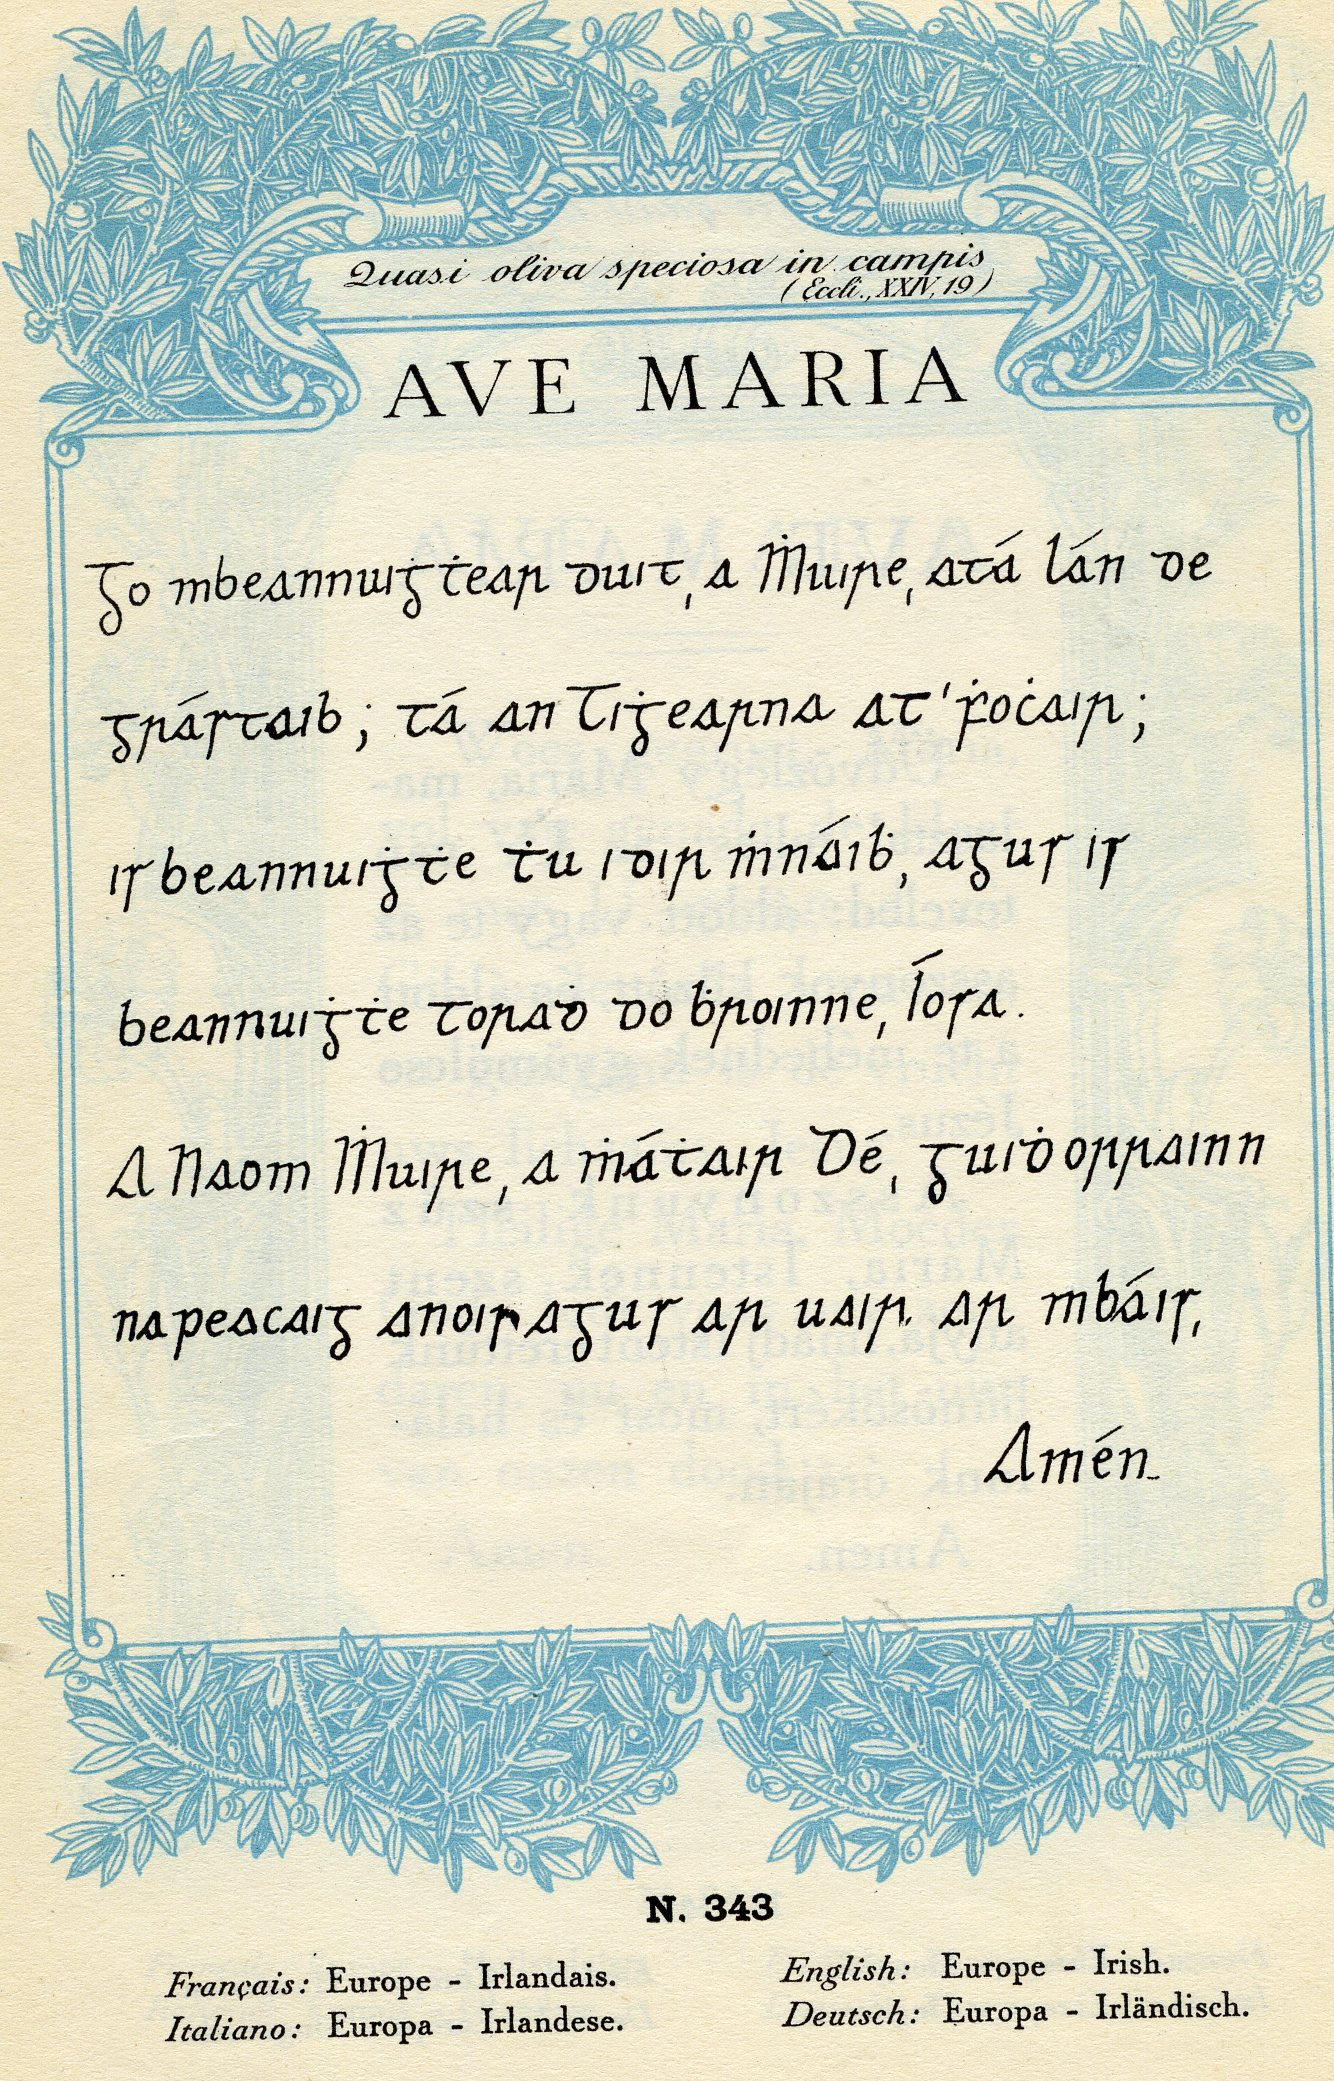 Quasi oliva speciosa in campis
(Eccli., XXIV, 19)
AVE MARIA
Go mbeannuiġṫear duit, a Ṁuire, atá lán de
grástaib; tá an Tiġearna at' ḟoċair;
is beannuiġṫe ṫu idir ṁnáiḃ, agus is
beannuiġṫe toraḋ do ḃroinne, Íosa.
A Naom Ṁuire, a ṁáṫair Dé, guiḋ orrainn
na peacaig anois agus ar uair ar mbáis,
Amén.
N. 343
Français: Europe - Irlandais.
Italiano: Europa - Irlandese.
English: Europe - Irish.
Deutsch: Europa - Irländisch.